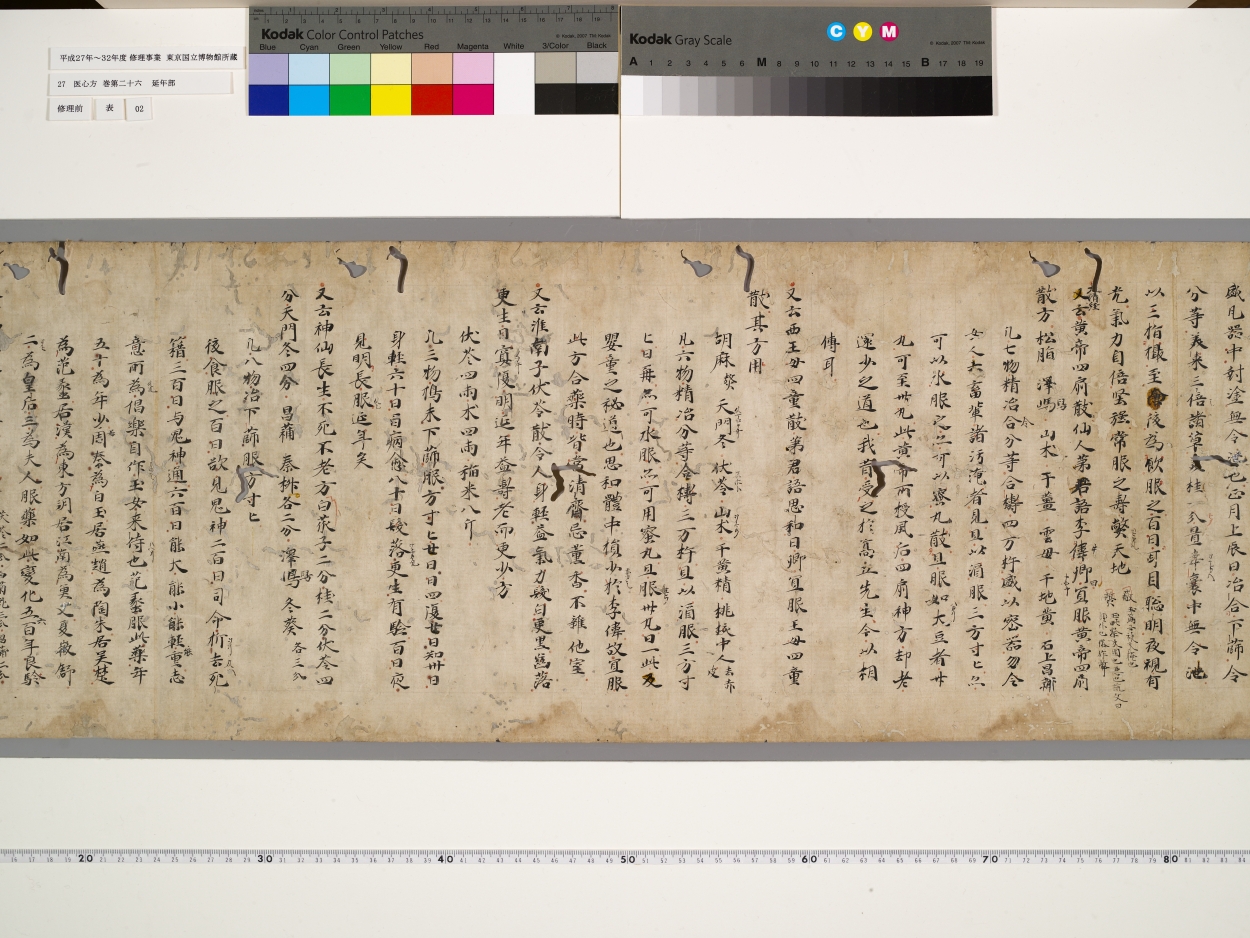 Kodak Color Control Patches
© Kodak, 2007 TM: Kodak
Blue Cyan Green Yellow Red Magenta White 3/Color Black
Kodak Gray Scale
C Y M
© Kodak, 2007 TM: Kodak
A 1 2 3 4 5 6 M 8 9 10 11 12 13 14 15 B 17 18 19
平成27年〜32年度 修理事業 東京国立博物館所蔵
27 医心方 巻第二十六 延年部
修理前 表 02
盛凡器中封塗無令洩也正月上辰日冶合下篩令
分等美米三倍諸草
以三指撮至 後為飲服之百日耳目聡明夜視有
光氣力自倍堅強常服之壽弊天地
又云黄帝四扇散仙人第君語李偉卿冝服黄帝四扇
散方 松脂 澤瀉 山朮 干薑 雲母 干地黄 石上菖蒲
凡七物精冶合分等合搗四万杵盛以密器勿令
女人六畜輩諸汚淹者見旦以酒服三方寸匕亦
可以水服之亦可以蜜丸散旦服如大豆者廿
丸可至卅丸此黄帝所授風后四扇神方却老
還少之道也我昔受之於高丘先生令以相
傳耳
又云西王母四童散第君語思和曰卿冝服王母四童
散其方用
胡麻 天門冬 伏苓 山朮 干黄精 桃核中人去赤皮
凡六物精冶分等合搗三万杵旦以酒服三方寸
匕日再亦可水服亦可用蜜丸旦服卅丸日一此反
嬰童之秘道也思和體中損少於李偉故冝服
此方合藥時皆當清齋忌薫香不雜他室
又云淮南子伏苓散令人身輕益氣力髪白更黒齒落
更生目冥復明延年益壽老而更少方
伏苓四兩朮四兩稲米八斤
凡三物搗末下篩服方寸匕廿日日四復廿日知卅日
身輕六十日百病愈八十日髪落更生有驗百日夜
見明長服延年矣
又云神仙長生不死不老方白茯子二分桂二分伏苓四
分天門冬四分 昌蒲 秦椒各二分 澤瀉 冬葵 各三分
凡八物冶下篩服方寸匕
後食服之百日欲見鬼神二百日司命折去死
籍三百日与鬼神通六百日能大能小能輕重志
意所為倡樂自作玉女来侍也范蠡服此藥年
五十為年少周秦為白玉居燕趙為陶朱居呉楚
為范蠡居漢為東方朔居江南為 夏徴舒
二為皇后三為夫人服藥如此變化五百年良驗